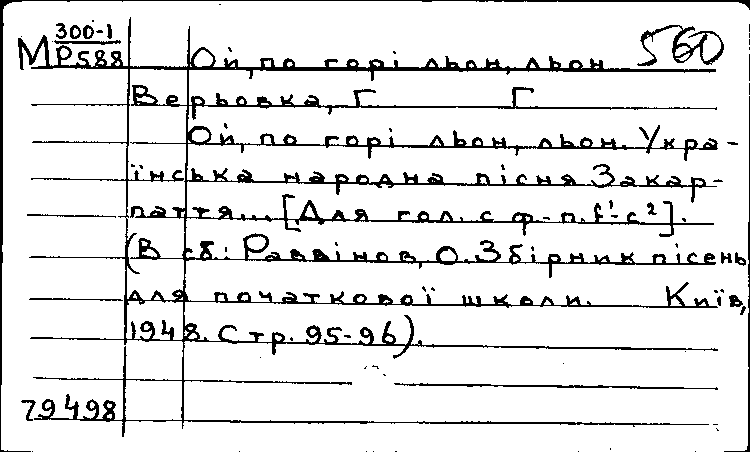 М 300-1
Р588
Ой, по горі льон, льон 560
Верьовка, Г Г
Ой, по горі льон, льон. Укра-
їнська народна пісня Закар-
паття... [Для гол. с ф-п. f¹-c²].
(В сб: Раввінов, О. Збірник пісень
для початкової школи. Київ,
1948. Стр. 95-96).
79498